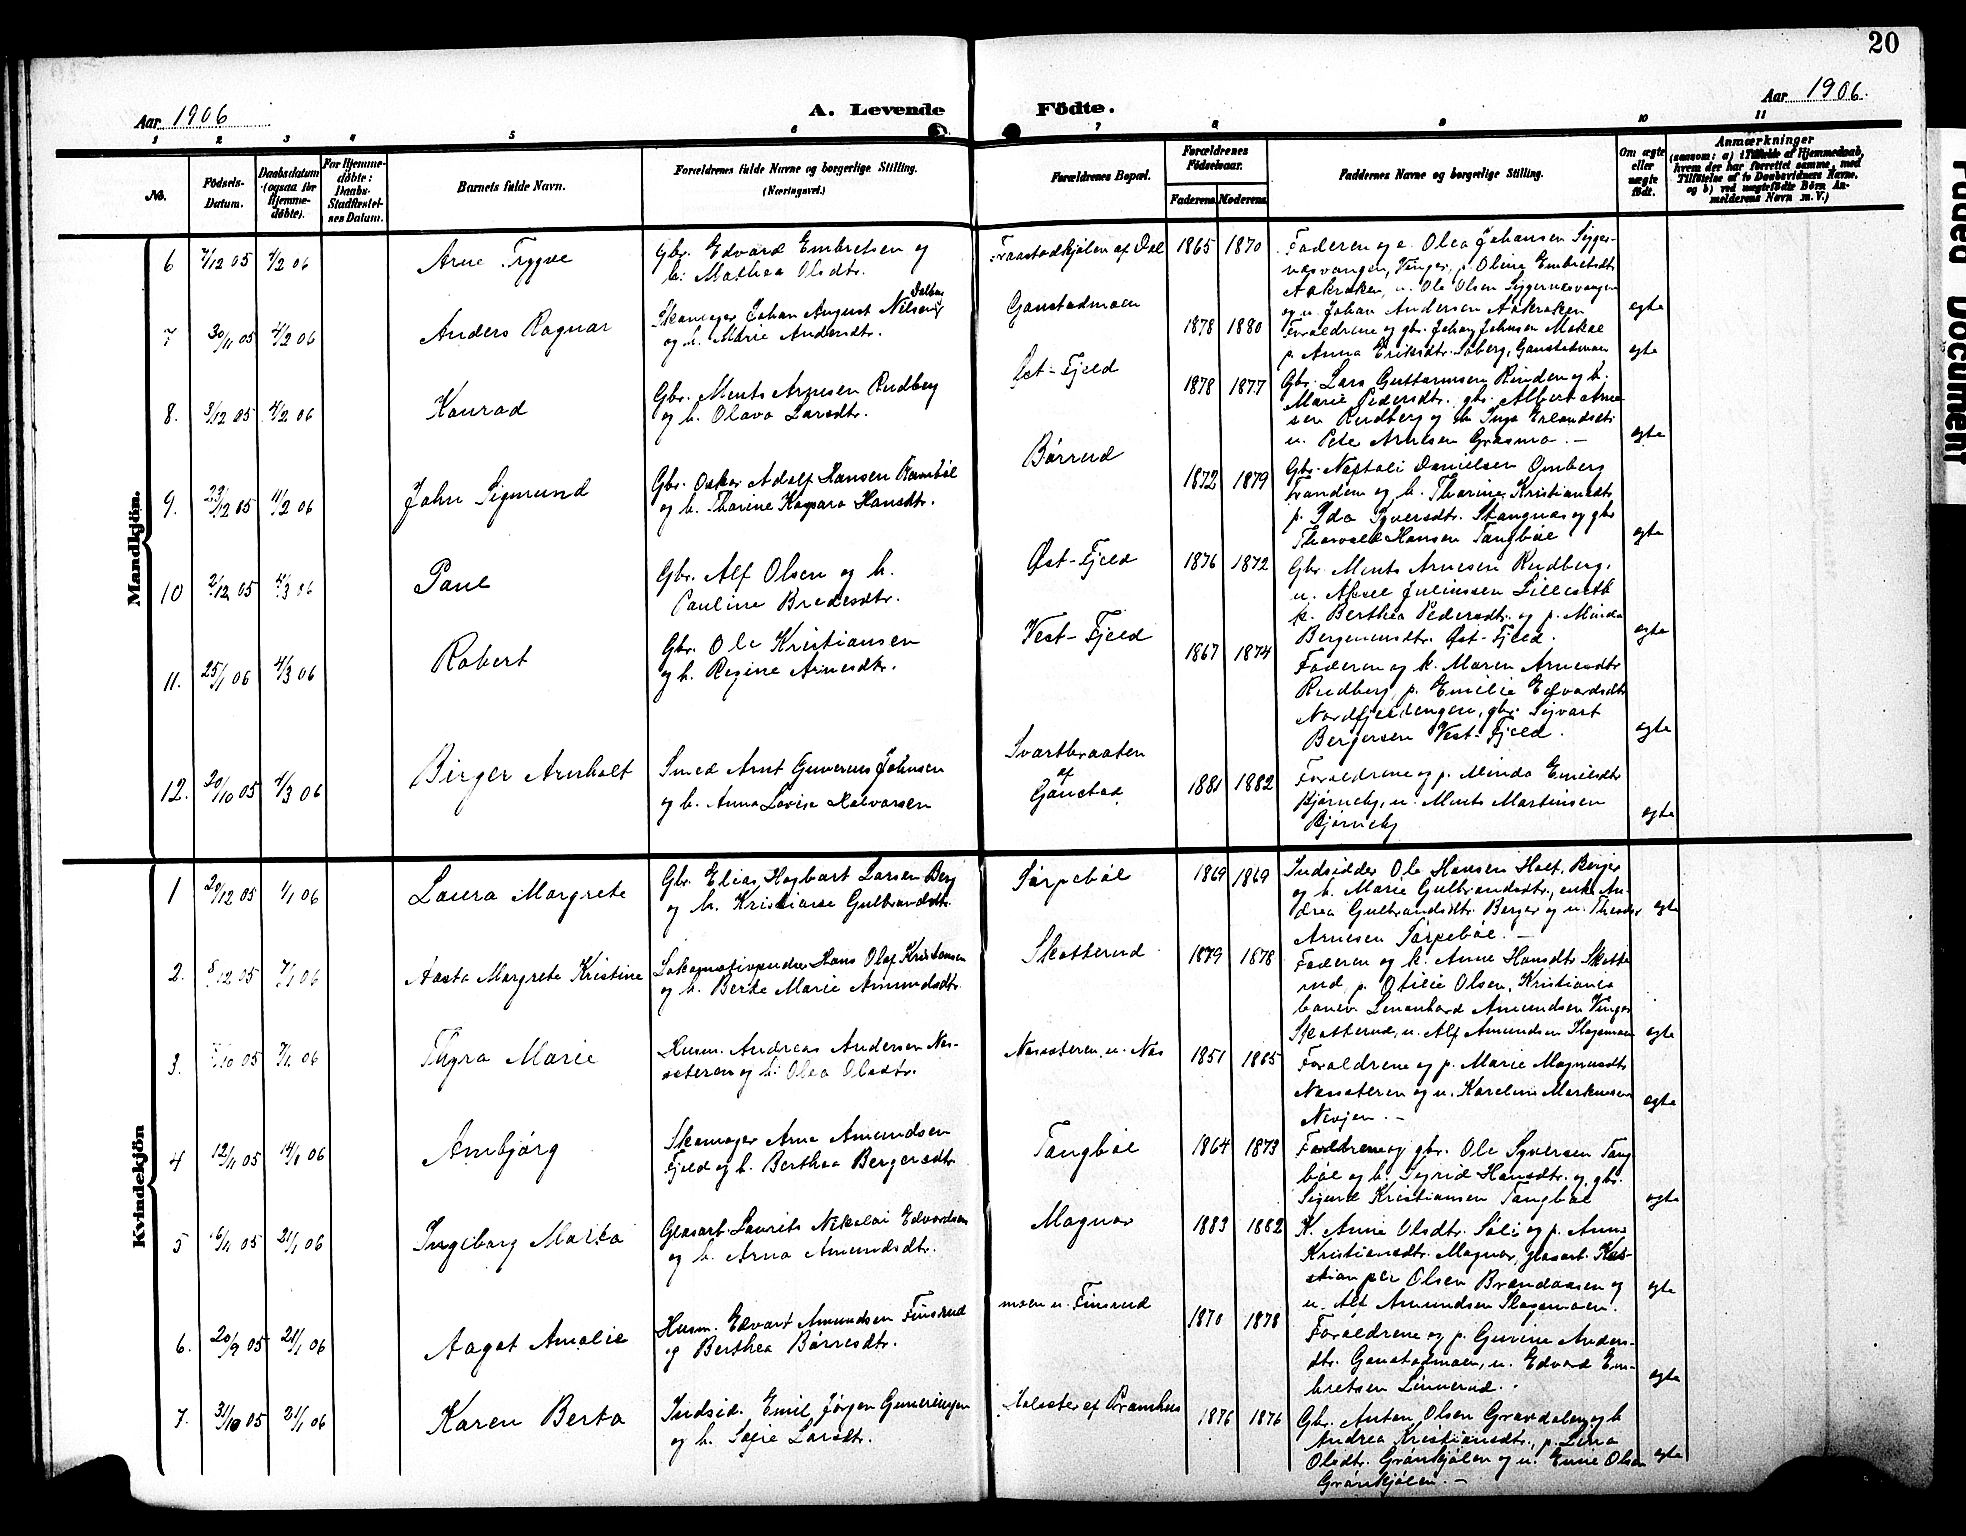 20
Aar 1906
A. Levende Födte.
Aar 1906.
1 2 3 4 5 6 7 8 9 10 11
No.
Födsels-Datum.
Daabsdatum (ogsaa for Hjemmedöbte).
For Hjemmedöbte: Daabs-Stadfæstelses Datum.
Barnets fulde Navn.
Forældrenes fulde Navne og borgerlige Stilling. (Næringsvei.)
Forældrenes Bopæl.
Forældrenes Födselsaar.
Faderens. Moderens.
Faddernes Navne og borgerlige Stilling.
Om ægte eller uægte födt.
Anmærkninger
(saasom: a) i Tilfælde af Hjemmedaab, hvem der har forrettet samme, med Tilföielse af to Daabsvidners Navne, og b) ved uægtefödte Börn Anmelderens Navn m. V.)
Mandkjön.
6 7/12 05 4/2 06 Arne Trygve
Gbr. Edvard Embretsen og
h. Mathea Olsdtr.
Fraastadkjølen af Dal 1865 1870
Faderen og e. Olea Johansen Sigger-
næsvangen, Vinger, p. Oline Embretsdt
Aakroken, u. Ole Olsen Siggernæsvangen
og u. Johan Andersen Aakroken
egte
7 30/11 05 4/2 06 Anders Ragnar
Skomager Johan August Nilsen Dalbye
og h. Marie Andersdtr.
Gaustadmoen 1878 1880
Forældrene og gbr. Johan Johnsen
p. Anna Eriksdtr. Soberg, Gaustadmoen
egte
8. 3/12 05 4/2 06 Konrad
Gbr. Ments Arnesen Rudberg
og h. Olava Larsdtr.
Øst-Fjeld 1878 1877
Gbr. Lars Guttormsen Rinden og h.
Marie Pedersdtr. gbr. Albert Arne-
sen Rudberg og h. Inga Erlandsdtr
u. Peter Arnesen Grasmo. —
egte
9. 23/12 05 4/2 06 John Sigmund
Gbr. Oskar Adolf Hansen Rambøl
og h. Thorine Kaspara Hansdtr.
Børrud 1872 1879
Gbr. Naftali Danielsen Omberg
Tranden og h. Thorine Kristiansdtr
p. Ida Syversdtr. Stangnæs og gbr
Thorvald Hansen Tangbøl
egte
10 2/12 05 4/3 06 Paul
Gbr. Alf Olsen og h.
Pauline Bredesdtr.
Øst-Fjeld 1876 1872
Gbr. Ments Arnesen Rudberg,
u. Aksel Juliussen Lillesæth
k. Berthea Pedersdtr. og p. Minda
Bergersensdtr. Øst-Fjeld.
egte
11. 25/1 06 4/3 06 Robert
Gbr. Ole Kristiansen
og h. Regine Arnesdtr.
Vest-Fjeld 1867 1874
Faderen og k. Maren Arnesdtr
Rudberg, p. Emilie Edvardsdtr
Nordfjeldengen, gbr. Sigvart
Bergersen Vest-Fjeld.
egte
12. 20/10 05 4/3 06 Birger Arnholt
Smed Arnt Gunerius Johnsen
og h. Anna Lovise Halvorsen
Svartbraaten
af
Gaustad 1881 1882
Forældrene og p. Minda Emilsdtr
Bjørneby, u. Ments Martinsen
Bjørneby
egte
Kvindekjön
1 20/12 05 1/1 06 Laura Margrete
Gbr. Elias Hagbart Larsen Berg
og h. Kristianse Gulbrandsdtr.
Tørpebøl 1869 1869
Indsidder Ole Hansen Holt, Berger
og h. Marie Gulbrandsdtr., enke An-
drea Gulbrandsdtr. Berger og u. Theodor
Arnesen Tørpebøl. —
egte
2. 8/12 05 7/1 06 Aasta Margrete Kristine
Lokomotivpudser Hans Olaf Kristiansen
og h. Berte Marie Amundsdtr.
Skotterud 1879 1878
Faderen og k. Anne Hansdtr. Skotte
rud, p. Otilie Olsen, Kristiania
banev. Lenenhard Amundsen Vinger
Skotterud, u. Alf Amundsen Flagemoen
egte
3. 7/10 05 7/1 06 Thyra Marie
Husm. Andreas Andersen Næs-
sæteren og h. Olea Olsdtr.
Næssæteren u. Næs 1851 1865
Forældrene og p. Marie Magnusdtr
Næssæteren og u. Karelius Markussen
egte
4 12/11 05 14/1 06 Arnbjørg
Skomager Arne Amundsen
Fjeld og h. Berthea Bergersdtr.
Tangbøl 1864 1873
Forældrene og gbr. Ole Syversen Tang
bøl og h. Sigrid Hansdtr. og gbr.
Sigurd Kristiansen Tangbøl
egte
5 16/11 05 21/1 06 Ingeborg Marta
Glasarb. Laurits Nikolai Edvardsen
og h. Arna Amundsdtr.
Magnor 1883 1882
K. Anne Olsdtr. Sæli og p. Anna
Kristiansdtr. Magnor, glasarb. Kri-
stian Olsen Brændaasen og
u. Alf Amundsen Flagemoen.
egte
6. 20/9 05 21/1 06 Aagot Amalie
Husm. Edvart Amundsen Finsrud
og Berthea Børresdtr.
moen u. Finsrud 1870 1878
Forældrene og p. Gurine Anders-
dtr. Gaustadmoen, u. Edvard Em-
bretsen Linnerud.
egte
7. 31/10 05 21/1 06 Karen Berta
Indsid. Emil Jørgen Guneriusen
og h. Sofie Larsdtr.
af Pramhus 1876 1876
Gbr. Anton Olsen Gravdalen og h
Andrea Kristiansdtr., p. Lina
Olsdtr. Grønkjølen og u. Enne Olsen
Grønkjølen. —
egte
Faded Document